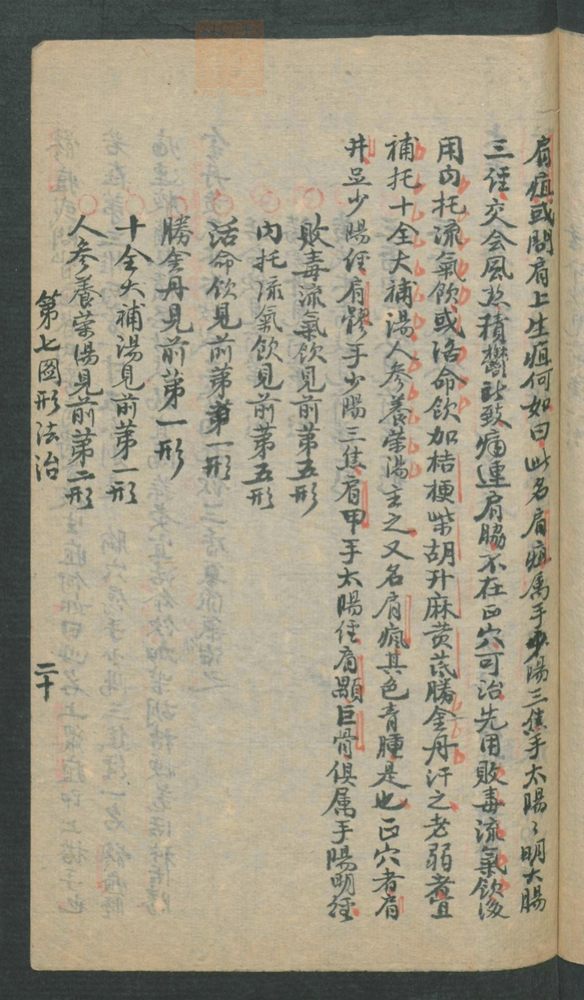 肩疽或問肩上生疽何如曰此名肩疽属手少陽三焦手太陽〻明大腸
三徑交会風熱積鬱所致痛連肩脇不在正穴可治先用敗毒流氣飲後
用内托流氣飲或活命飲加桔梗柴胡升麻黄芪勝金丹汗之老弱者宜
補托十全大補湯人參養荣湯主之又名肩瘋其色青腫是也正穴者肩
井足少陽徑肩髎手少陽三焦肩甲手太陽徑肩顒巨骨俱属手陽明徑
敗毒流氣飲見前第五形
内托流氣飲見前第五形
活命飲見前第一形
勝金丹見前第一形
十全大補湯見前第一形
人參養荣湯見前第二形
第七圖形法治 二十